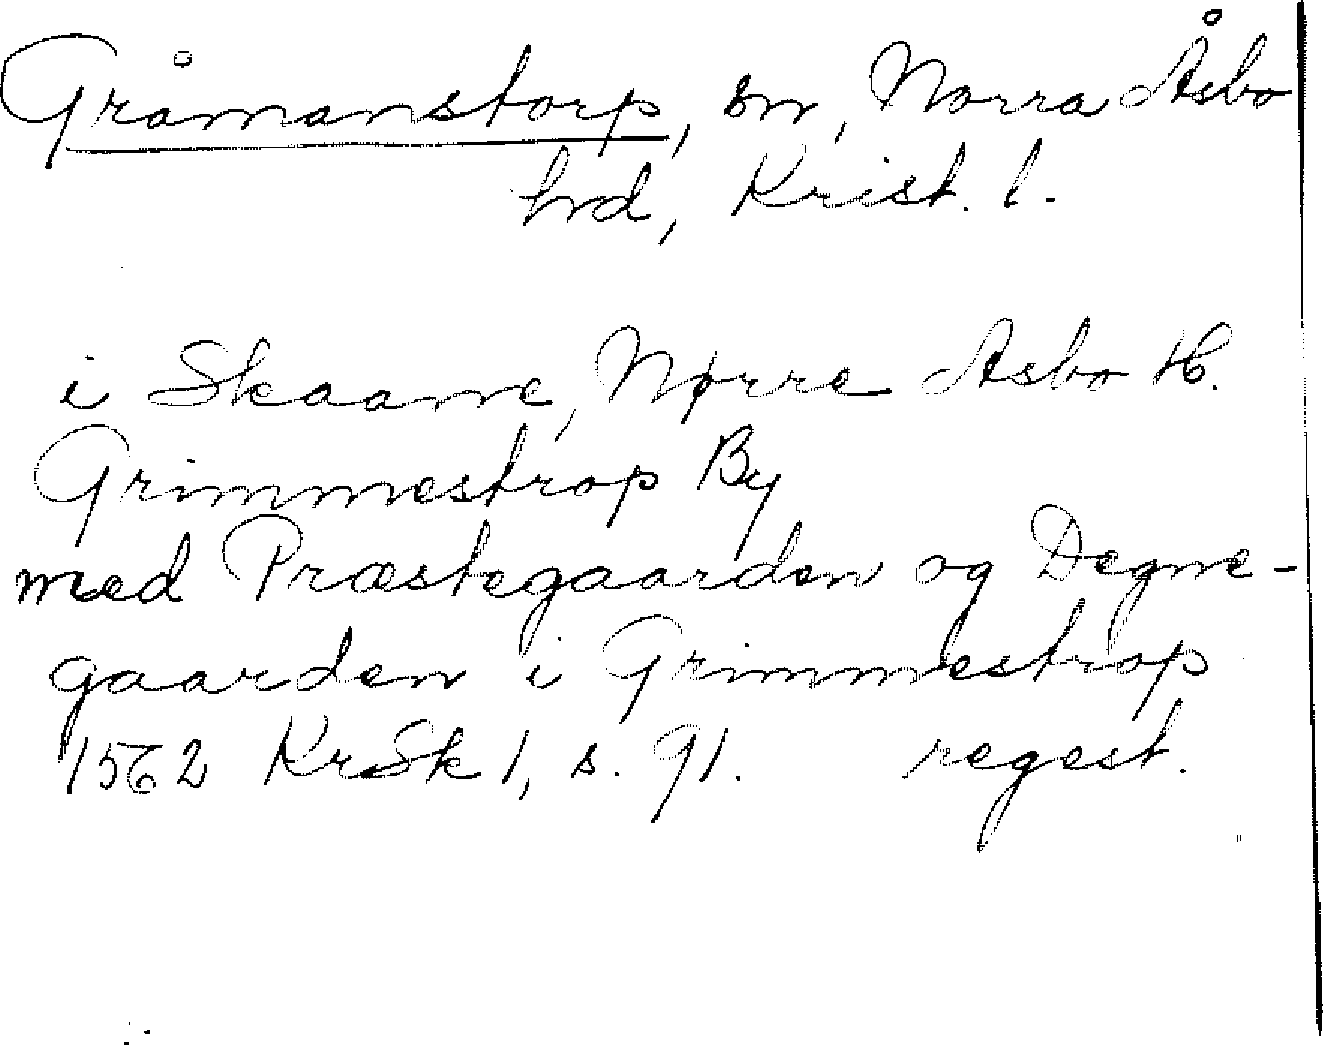 Gråmanstorp, sn, Norra Åsbo
hrd, Krist. l.
i Skaane, Nørre Asbo H.
Grimmestrop By
med Præstegaarden og Degne-
gaarden i Grimmestrop
1562 KrSk 1, s. 91. regest.